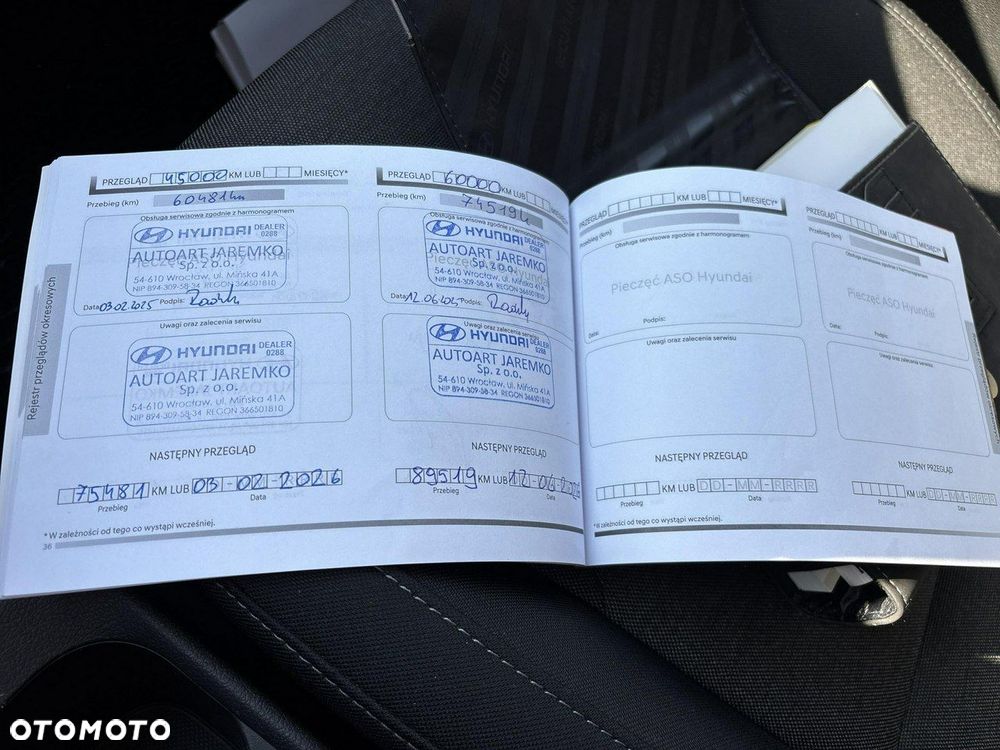 PRZEGLĄD 45000 KM LUB MIESIĘCY*
Przebieg (km) 60481km
Obsługa serwisowa zgodnie z harmonogramem
HYUNDAI DEALER 0288
AUTOART JAREMKO
Sp. z o.o.
54-610 Wrocław, ul. Mińska 41A
NIP 894-309-58-34 REGON 366501810
Data: 03.02.2025 Podpis:
Uwagi i zalecenia serwisu
HYUNDAI DEALER 0288
AUTOART JAREMKO
Sp. z o.o.
54-610 Wrocław, ul. Mińska 41A
NIP 894-309-58-34 REGON 366501810
NASTĘPNY PRZEGLĄD
75481 KM LUB 03-02-2026
Przebieg Data
* W zależności od tego co wystąpi wcześniej.
36
Rejestr przeglądów okresowych
PRZEGLĄD 60000 KM LUB MIESIĘCY*
Przebieg (km) 74519k
Obsługa serwisowa zgodnie z harmonogramem
HYUNDAI DEALER 0288
AUTOART JAREMKO
Sp. z o.o.
54-610 Wrocław, ul. Mińska 41A
NIP 894-309-58-34 REGON 366501810
Data: 12.06.2025 Podpis:
Uwagi oraz zalecenia serwisu
HYUNDAI DEALER 0288
AUTOART JAREMKO
Sp. z o.o.
54-610 Wrocław, ul. Mińska 41A
NIP 894-309-58-34 REGON 366501810
NASTĘPNY PRZEGLĄD
89519 KM LUB
Przebieg Data
PRZEGLĄD KM LUB MIESIĘCY*
Przebieg (km)
Obsługa serwisowa zgodnie z harmonogramem
Pieczęć ASO Hyundai
Data: Podpis:
Uwagi oraz zalecenia serwisu
NASTĘPNY PRZEGLĄD
KM LUB DD-MM-RRRR
Przebieg Data
* W zależności od tego co wystąpi wcześniej.
PRZEGLĄD KM LUB MIESIĘCY*
Przebieg (km)
Obsługa serwisowa zgodnie z harmonogramem
Pieczęć ASO Hyundai
Data: Podpis:
Uwagi oraz zalecenia serwisu
NASTĘPNY PRZEGLĄD
KM LUB DD-MM-RRRR
Przebieg Data
OTOMOTO